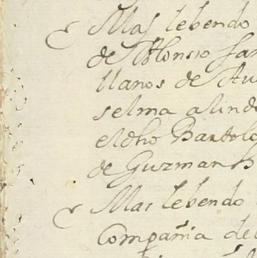 Mas lebendo
de Alonsso
llanos de
selma alinde
eldho Bartolo
de Guzman
Mas lebendo
Compañia de